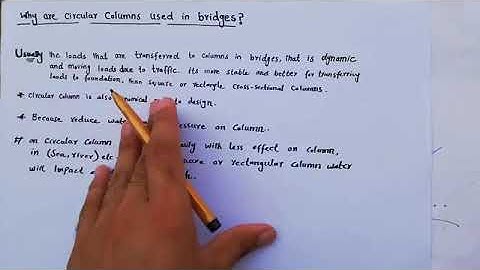 Why are Circular Columns used in bridges?
Usually the loads that are transferred to columns in bridges, that is dynamic
and moving loads due to traffic. Its more stable and better for transferring
loads to foundation, than square or rectangle cross-sectional columns.
* Circular column is also to design.
* Because reduce pressure on column.
# on circular column with less effect on column,
in (Sea, river) etc or rectangular column water
will impact